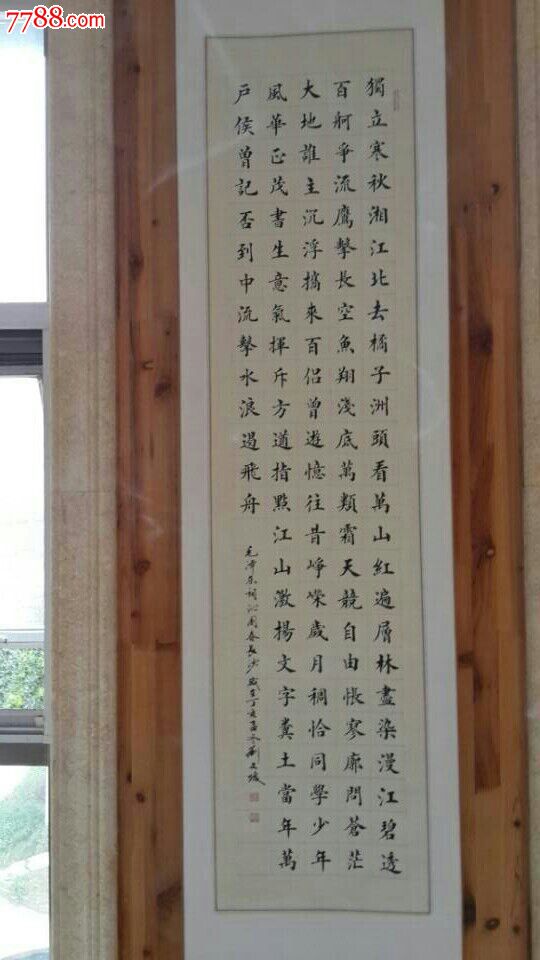 7788.com
獨立寒秋湘江北去橘子洲頭看萬山紅遍層林盡染漫江碧透
百舸爭流鷹擊長空魚翔淺底萬類霜天競自由悵寥廓問蒼茫
大地誰主沉浮攜來百侶曾遊憶往昔崢嶸歲月稠恰同學少年
風華正茂書生意氣揮斥方遒指點江山激揚文字糞土當年萬
戶侯曾記否到中流擊水浪遏飛舟
毛澤东詞沁園春長沙歲在丁亥孟冬劉文